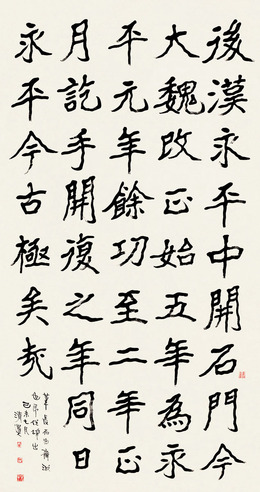 後漢永平中開石門今
大魏改正始五年為永
平元年餘功至二年正
月訖手開復之年同日
永平今古極矣哉